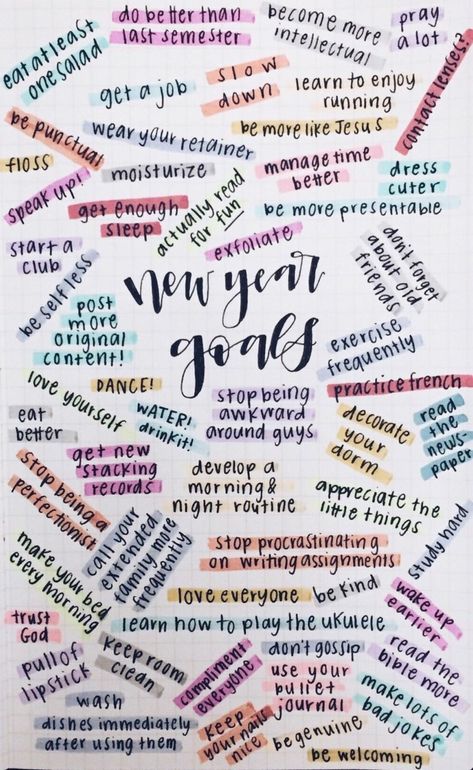 do better than
last semester
become more
intellectual
pray
a lot
eat at least
one salad
get a job
slow
down
learn to enjoy
running
contact lenses?
be punctual
wear your retainer
be more like Jesus
floss
moisturize
manage time
better
dress
cuter
speak up!
get enough
sleep
actually read
for fun
be more presentable
start a
club
exfoliate
don't forget
about old
friends
be self less
new year
goals
post
more
original
content!
exercise
frequently
love yourself
DANCE!
practice french
eat
better
WATER!
drink it!
stop being
awkward
around guys
decorate
your
dorm
read
the
news
paper
get new
stacking
records
stop being a
perfectionist
develop a
morning &
night routine
appreciate the
little things
call your
extended
family more
frequently
study hard
make your bed
every morning
stop procrastinating
on writing assignments
love everyone
be kind
wake up
earlier
trust
God
learn how to play the ukulele
pull of
lipstick
keep room
clean
compliment
everyone
don't gossip
read the
bible more
use your
bullet
journal
wash
dishes immediately
after using them
keep
your nails
nice
be genuine
make lots of
bad jokes
be welcoming